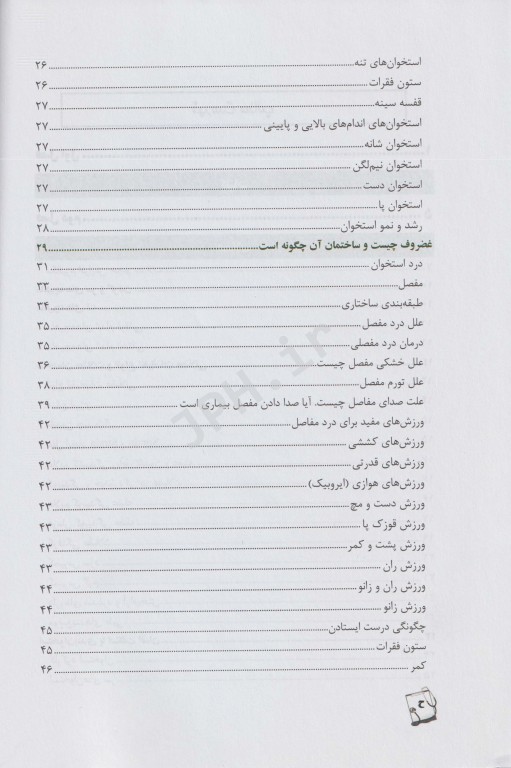 استخوان‌های تنه ........ ۲۶
ستون فقرات ........ ۲۶
قفسه سینه ........ ۲۷
استخوان‌های اندام‌های بالایی و پایینی ........ ۲۷
استخوان شانه ........ ۲۷
استخوان نیم‌لگن ........ ۲۷
استخوان دست ........ ۲۷
استخوان پا ........ ۲۷
رشد و نمو استخوان ........ ۲۸
غضروف چیست و ساختمان آن چگونه است ........ ۲۹
درد استخوان ........ ۳۱
مفصل ........ ۳۳
طبقه‌بندی ساختاری ........ ۳۴
علل درد مفصل ........ ۳۵
درمان درد مفصلی ........ ۳۵
علل خشکی مفصل چیست ........ ۳۶
علل تورم مفصل ........ ۳۸
علت صدای مفاصل چیست. آیا صدا دادن مفصل بیماری است ........ ۳۹
ورزش‌های مفید برای درد مفاصل ........ ۴۲
ورزش‌های کششی ........ ۴۲
ورزش‌های قدرتی ........ ۴۲
ورزش‌های هوازی (ایروبیک) ........ ۴۲
ورزش دست و مچ ........ ۴۳
ورزش قوزک پا ........ ۴۳
ورزش پشت و کمر ........ ۴۳
ورزش ران ........ ۴۳
ورزش ران و زانو ........ ۴۴
ورزش زانو ........ ۴۴
چگونگی درست ایستادن ........ ۴۵
ستون فقرات ........ ۴۵
کمر ........ ۴۶
JPH.ir